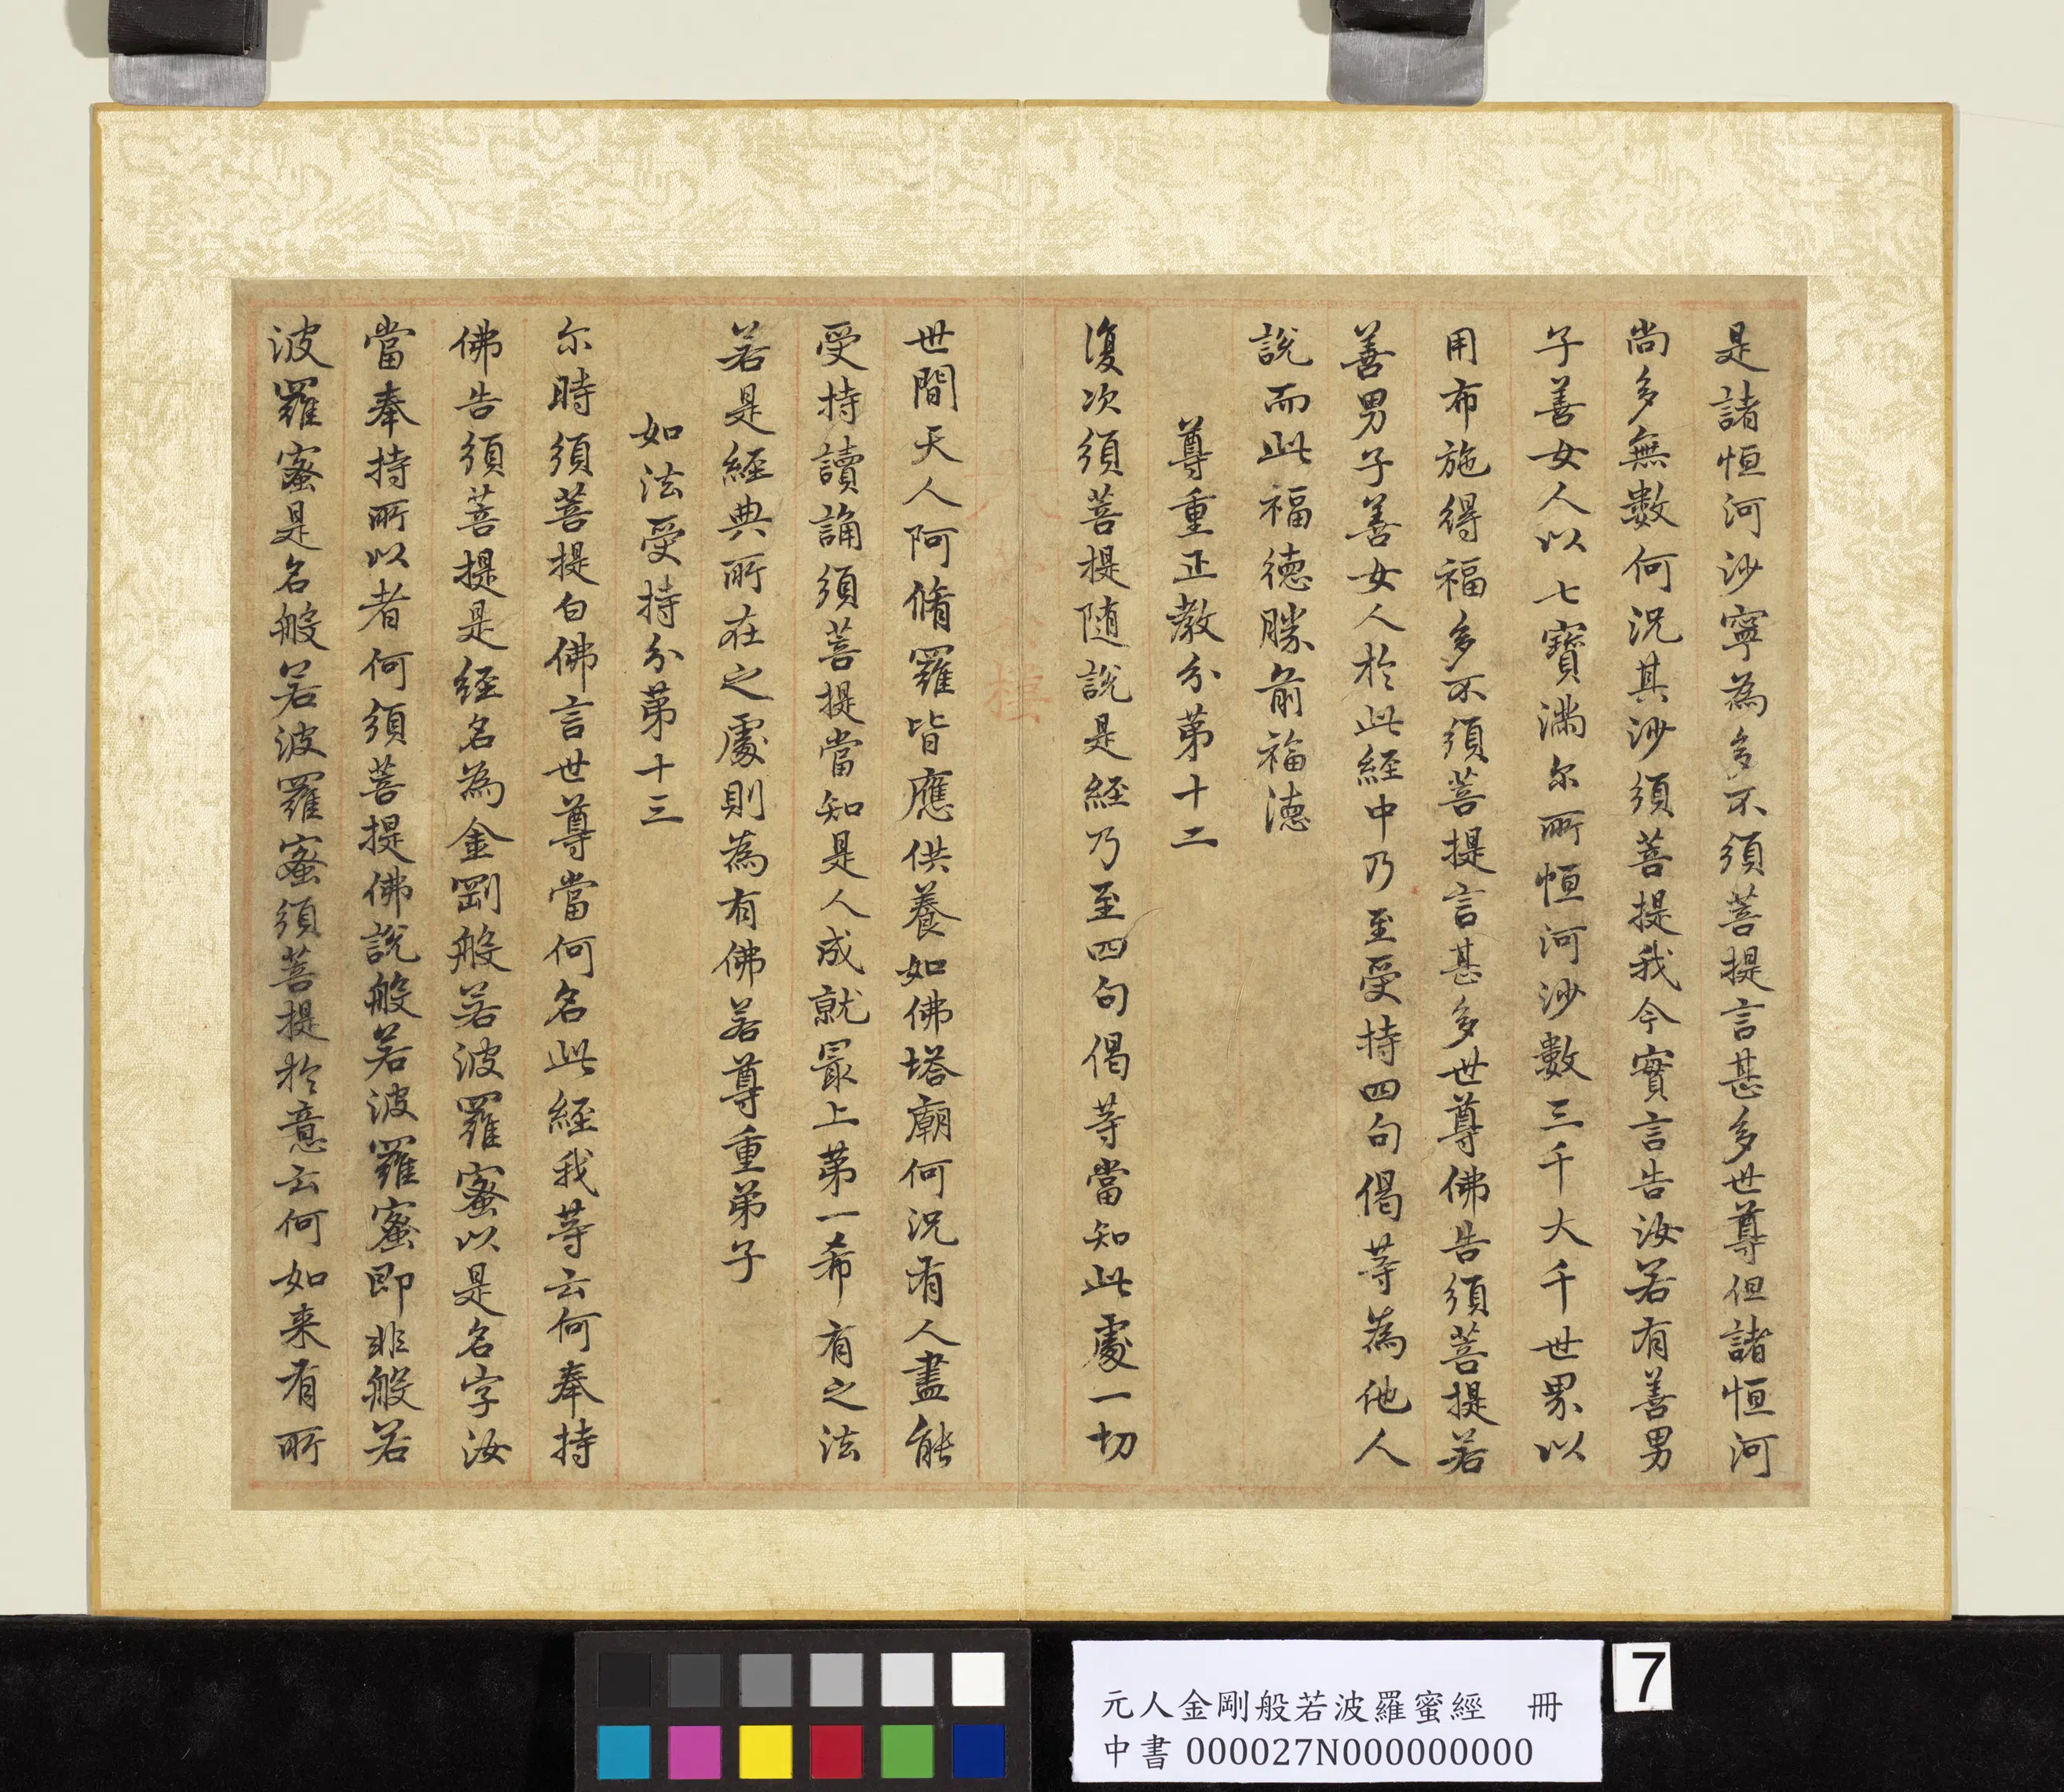 是諸恒河沙寧為多不須菩提言甚多世尊但諸恒河
尚多無數何況其沙須菩提我今實言告汝若有善男
子善女人以七寶滿尔所恒河沙數三千大千世界以
用布施得福多不須菩提言甚多世尊佛告須菩提若
善男子善女人於此經中乃至受持四句偈等為他人
說而此福德勝前福德
尊重正教分第十二
復次須菩提隨說是經乃至四句偈等當知此處一切
世間天人阿脩羅皆應供養如佛塔廟何況有人盡能
受持讀誦須菩提當知是人成就冣上第一希有之法
若是經典所在之處則為有佛若尊重弟子
如法受持分第十三
尔時須菩提白佛言世尊當何名此經我等云何奉持
佛告須菩提是經名為金剛般若波羅蜜以是名字汝
當奉持所以者何須菩提佛說般若波羅蜜即非般若
波羅蜜是名般若波羅蜜須菩提於意云何如来有所
元人金剛般若波羅蜜經 冊
中書 000027N000000000
7